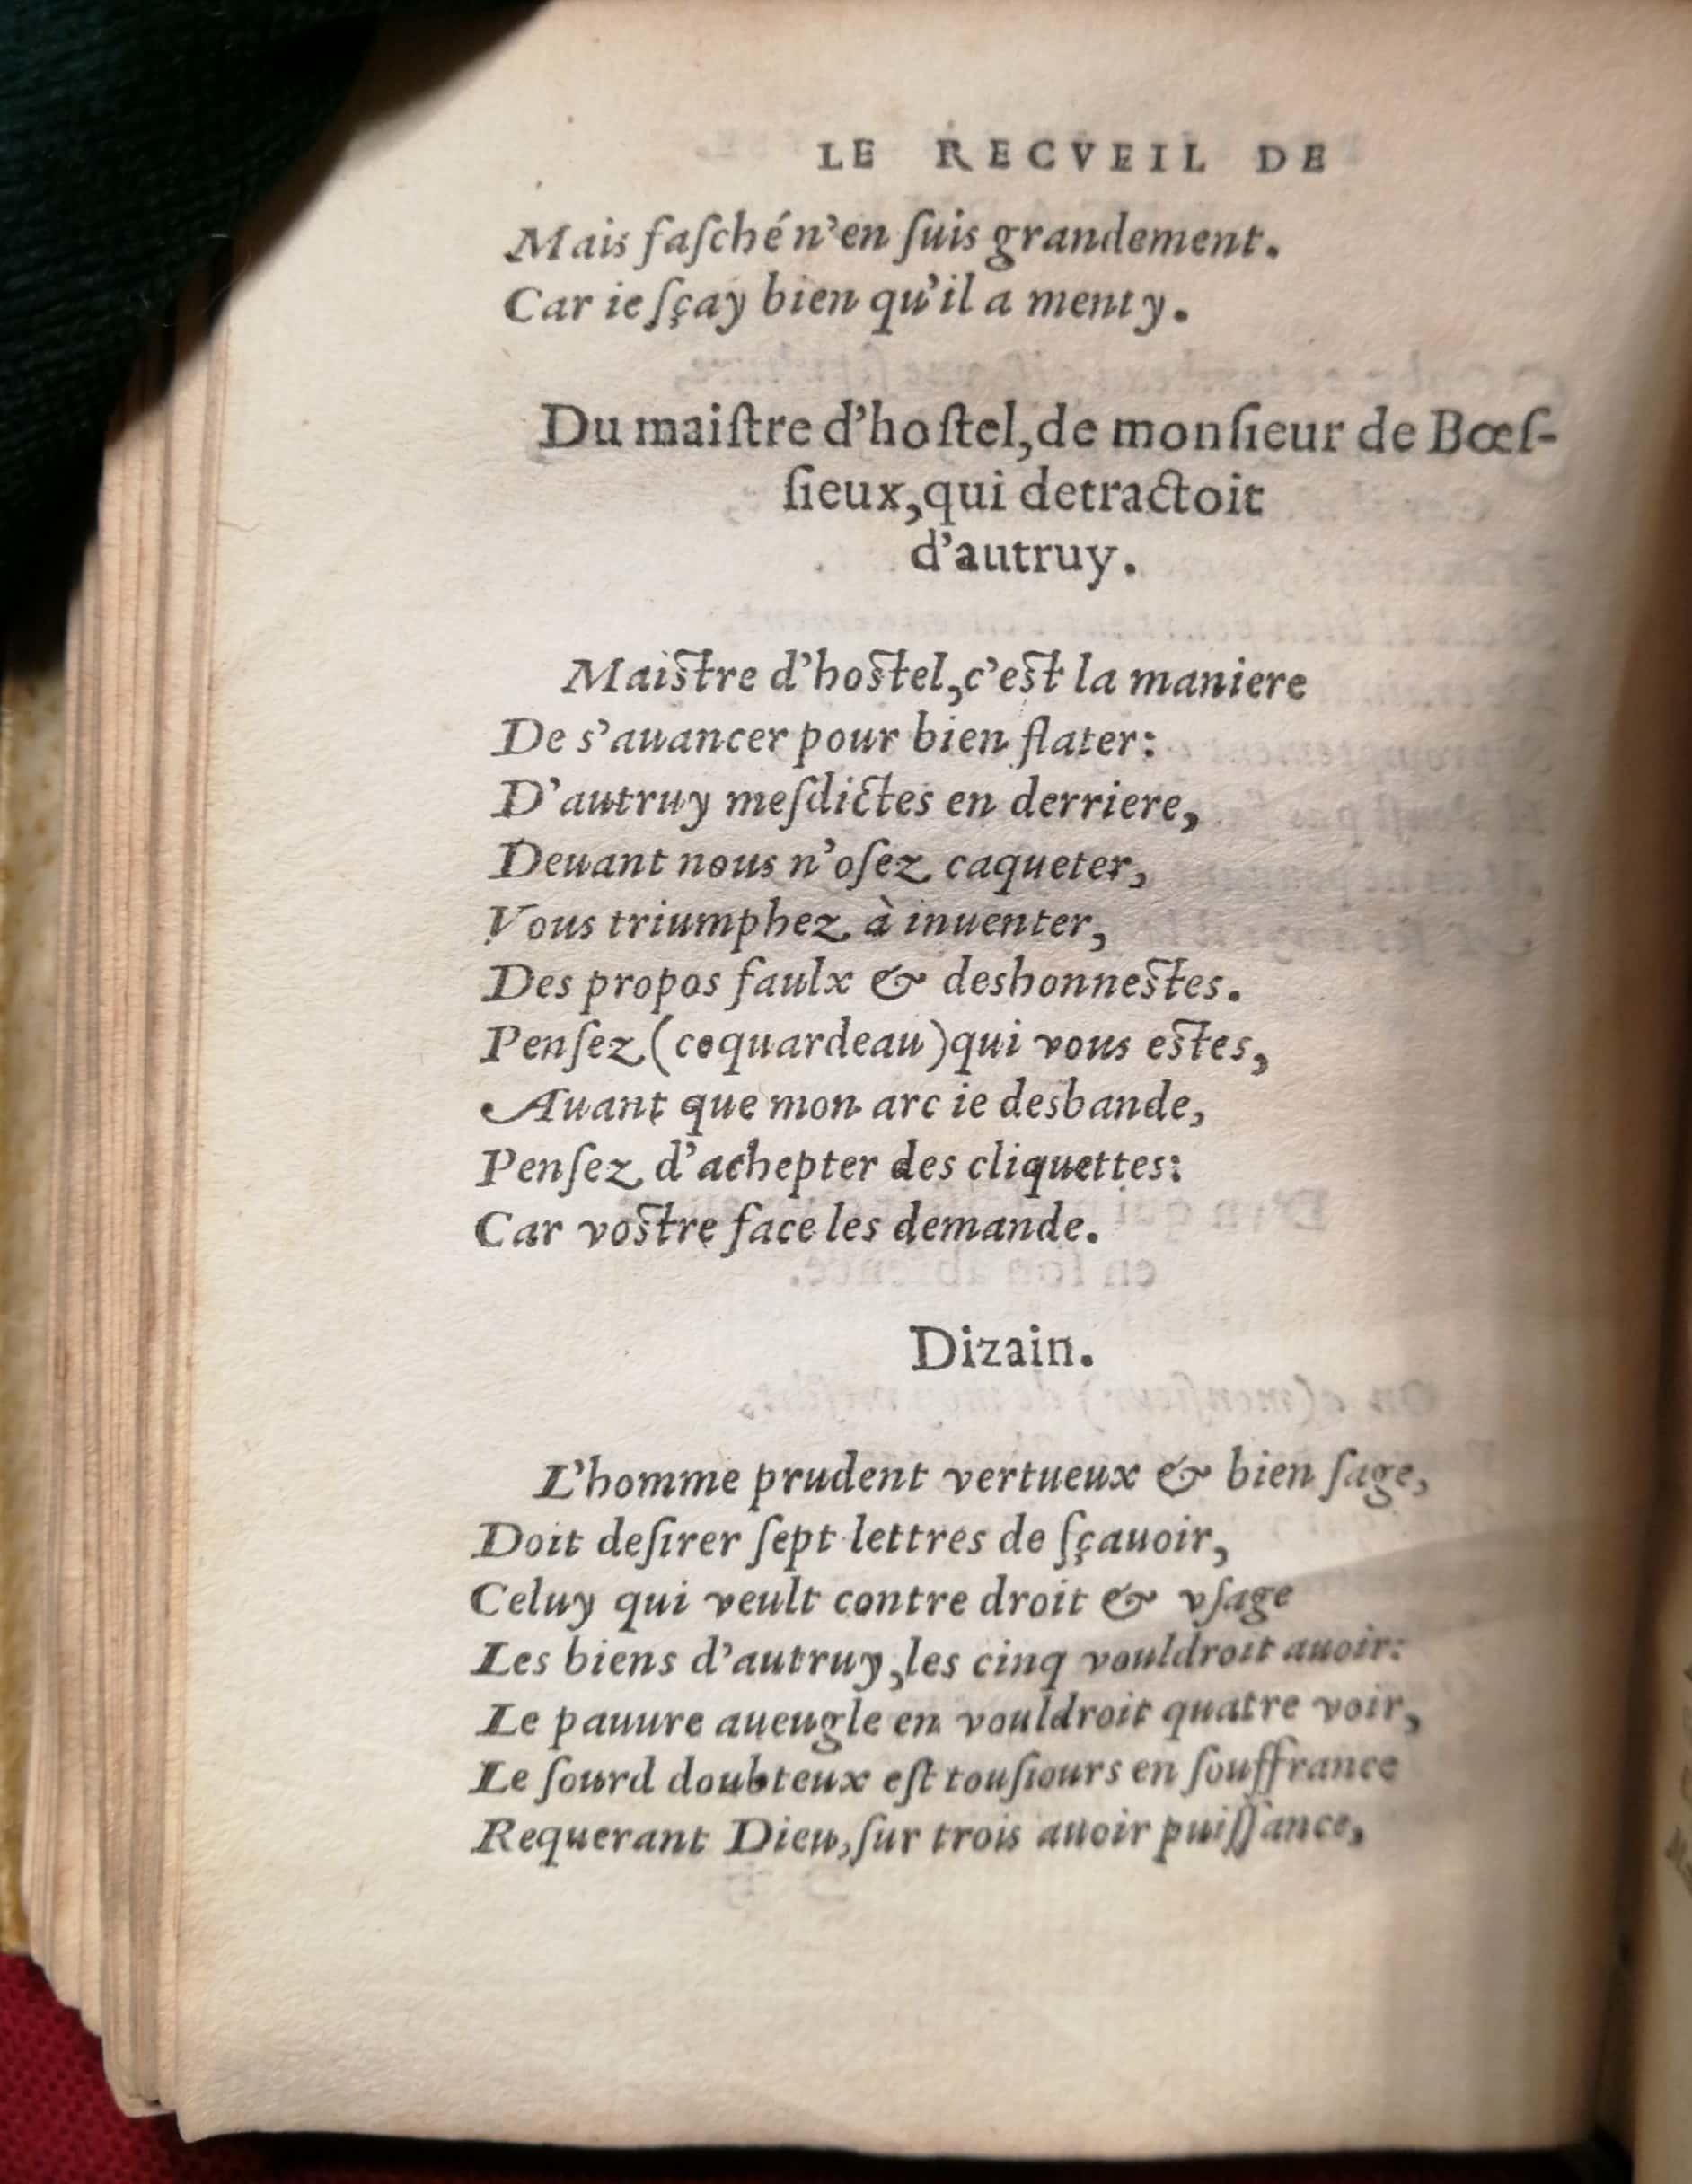 LE RECVEIL DE
Mais faſché n'en ſuis grandement.
Car ie ſçay bien qu'il a menty.
Du maiſtre d'hoſtel, de monſieur de Bœſ-
ſieux, qui detractoit
d'autruy.
Maiſtre d'hoſtel, c'eſt la maniere
De s'auancer pour bien flater:
D'autruy meſdictes en derriere,
Deuant nous n'oſez caqueter,
Vous triumphez à inuenter,
Des propos faulx & deshonneſtes.
Penſez (coquardeau) qui vous eſtes,
Auant que mon arc ie desbande,
Penſez d'achepter des cliquettes:
Car voſtre face les demande.
Dizain.
L'homme prudent vertueux & bien ſage,
Doit deſirer ſept lettres de ſçauoir,
Celuy qui veult contre droit & vſage
Les biens d'autruy, les cinq vouldroit auoir:
Le pauure aueugle en vouldroit quatre voir,
Le ſourd doubteux eſt touſiours en ſouffrance
Requerant Dieu, ſur trois auoir puiſſance,